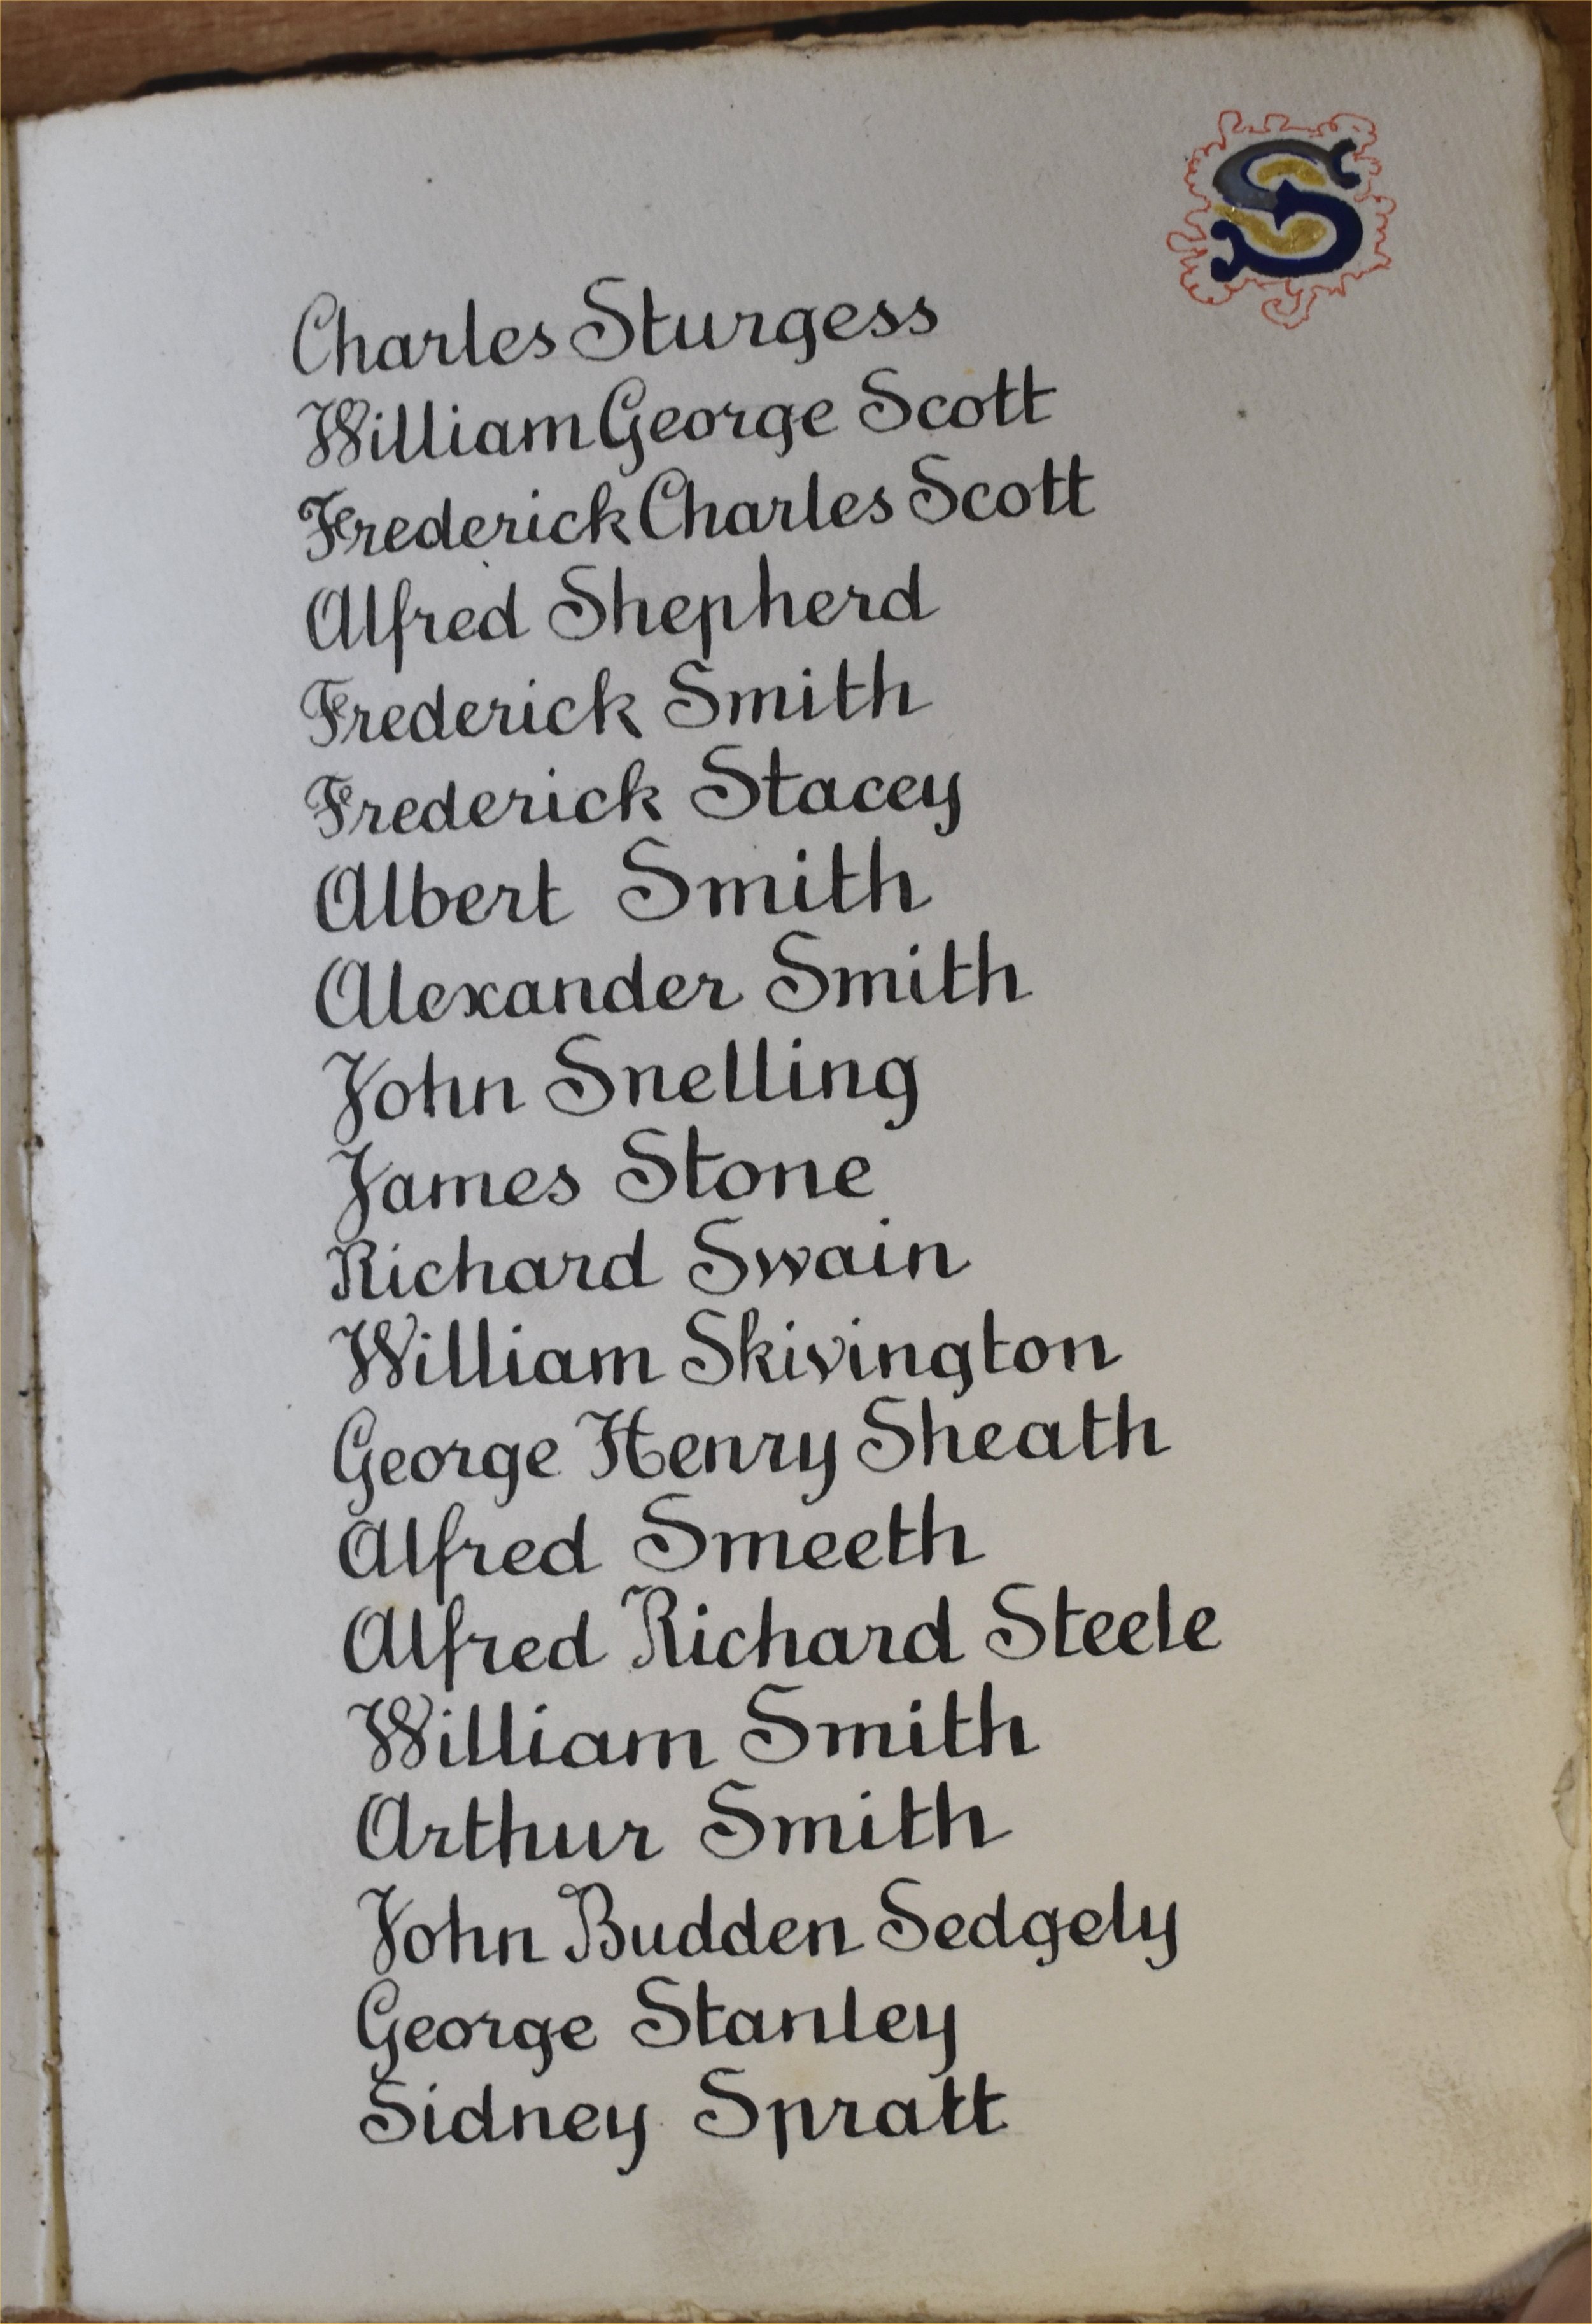 S
Charles Sturgess
William George Scott
Frederick Charles Scott
Alfred Shepherd
Frederick Smith
Frederick Stacey
Albert Smith
Alexander Smith
John Snelling
James Stone
Richard Swain
William Skivington
George Henry Sheath
Alfred Smeeth
Alfred Richard Steele
William Smith
Arthur Smith
John Budden Sedgely
George Stanley
Sidney Spratt